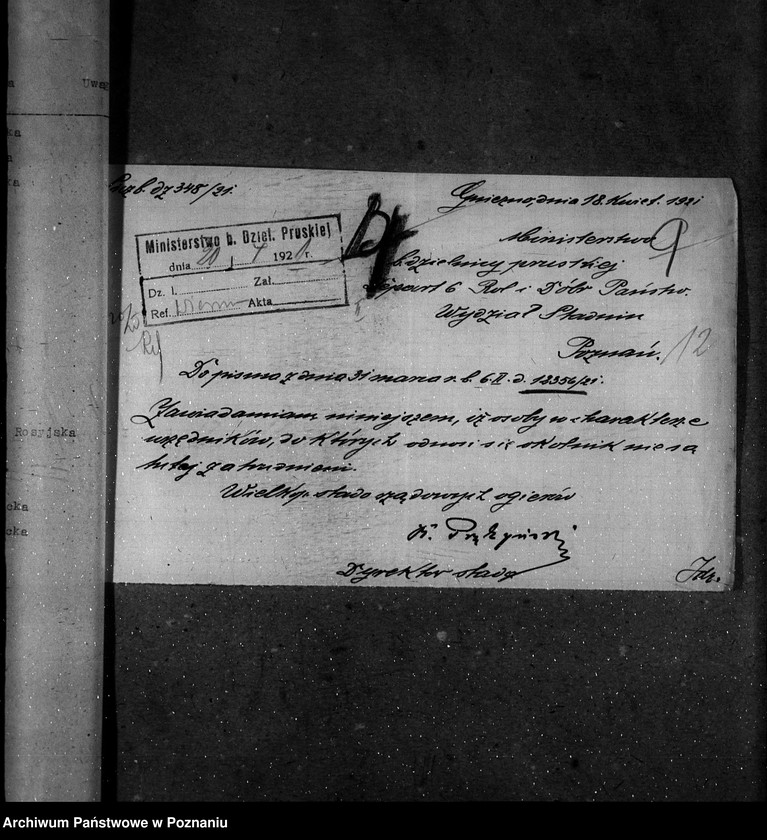 Uwag
ka
a
ka
Rosyjska
cka
cka
Liczb. dz 348/21.
Gniezno, dnia 18. Kwiet. 1921
Ministerstwo
b. dzielnicy pruskiej
Depart 6 Rol i Dóbr Państw.
Wydział Stadnin
Poznań.
9
12
Ministerstwo b. Dziel. Pruskiej
dnia 20. 4 1921 r.
Dz. I. Zał.
Ref. Akta
Do pisma z dnia 31 marca r. b. 6. II. d. 12356/21.
Zawiadamiam niniejszem, iż osoby w charakterze
urzędników, do których odnosi się okólnik nie są
tutaj zatrudnieni.
Wielkop. stado rządowych ogierów
Dyrektor stada
Archiwum Państwowe w Poznaniu